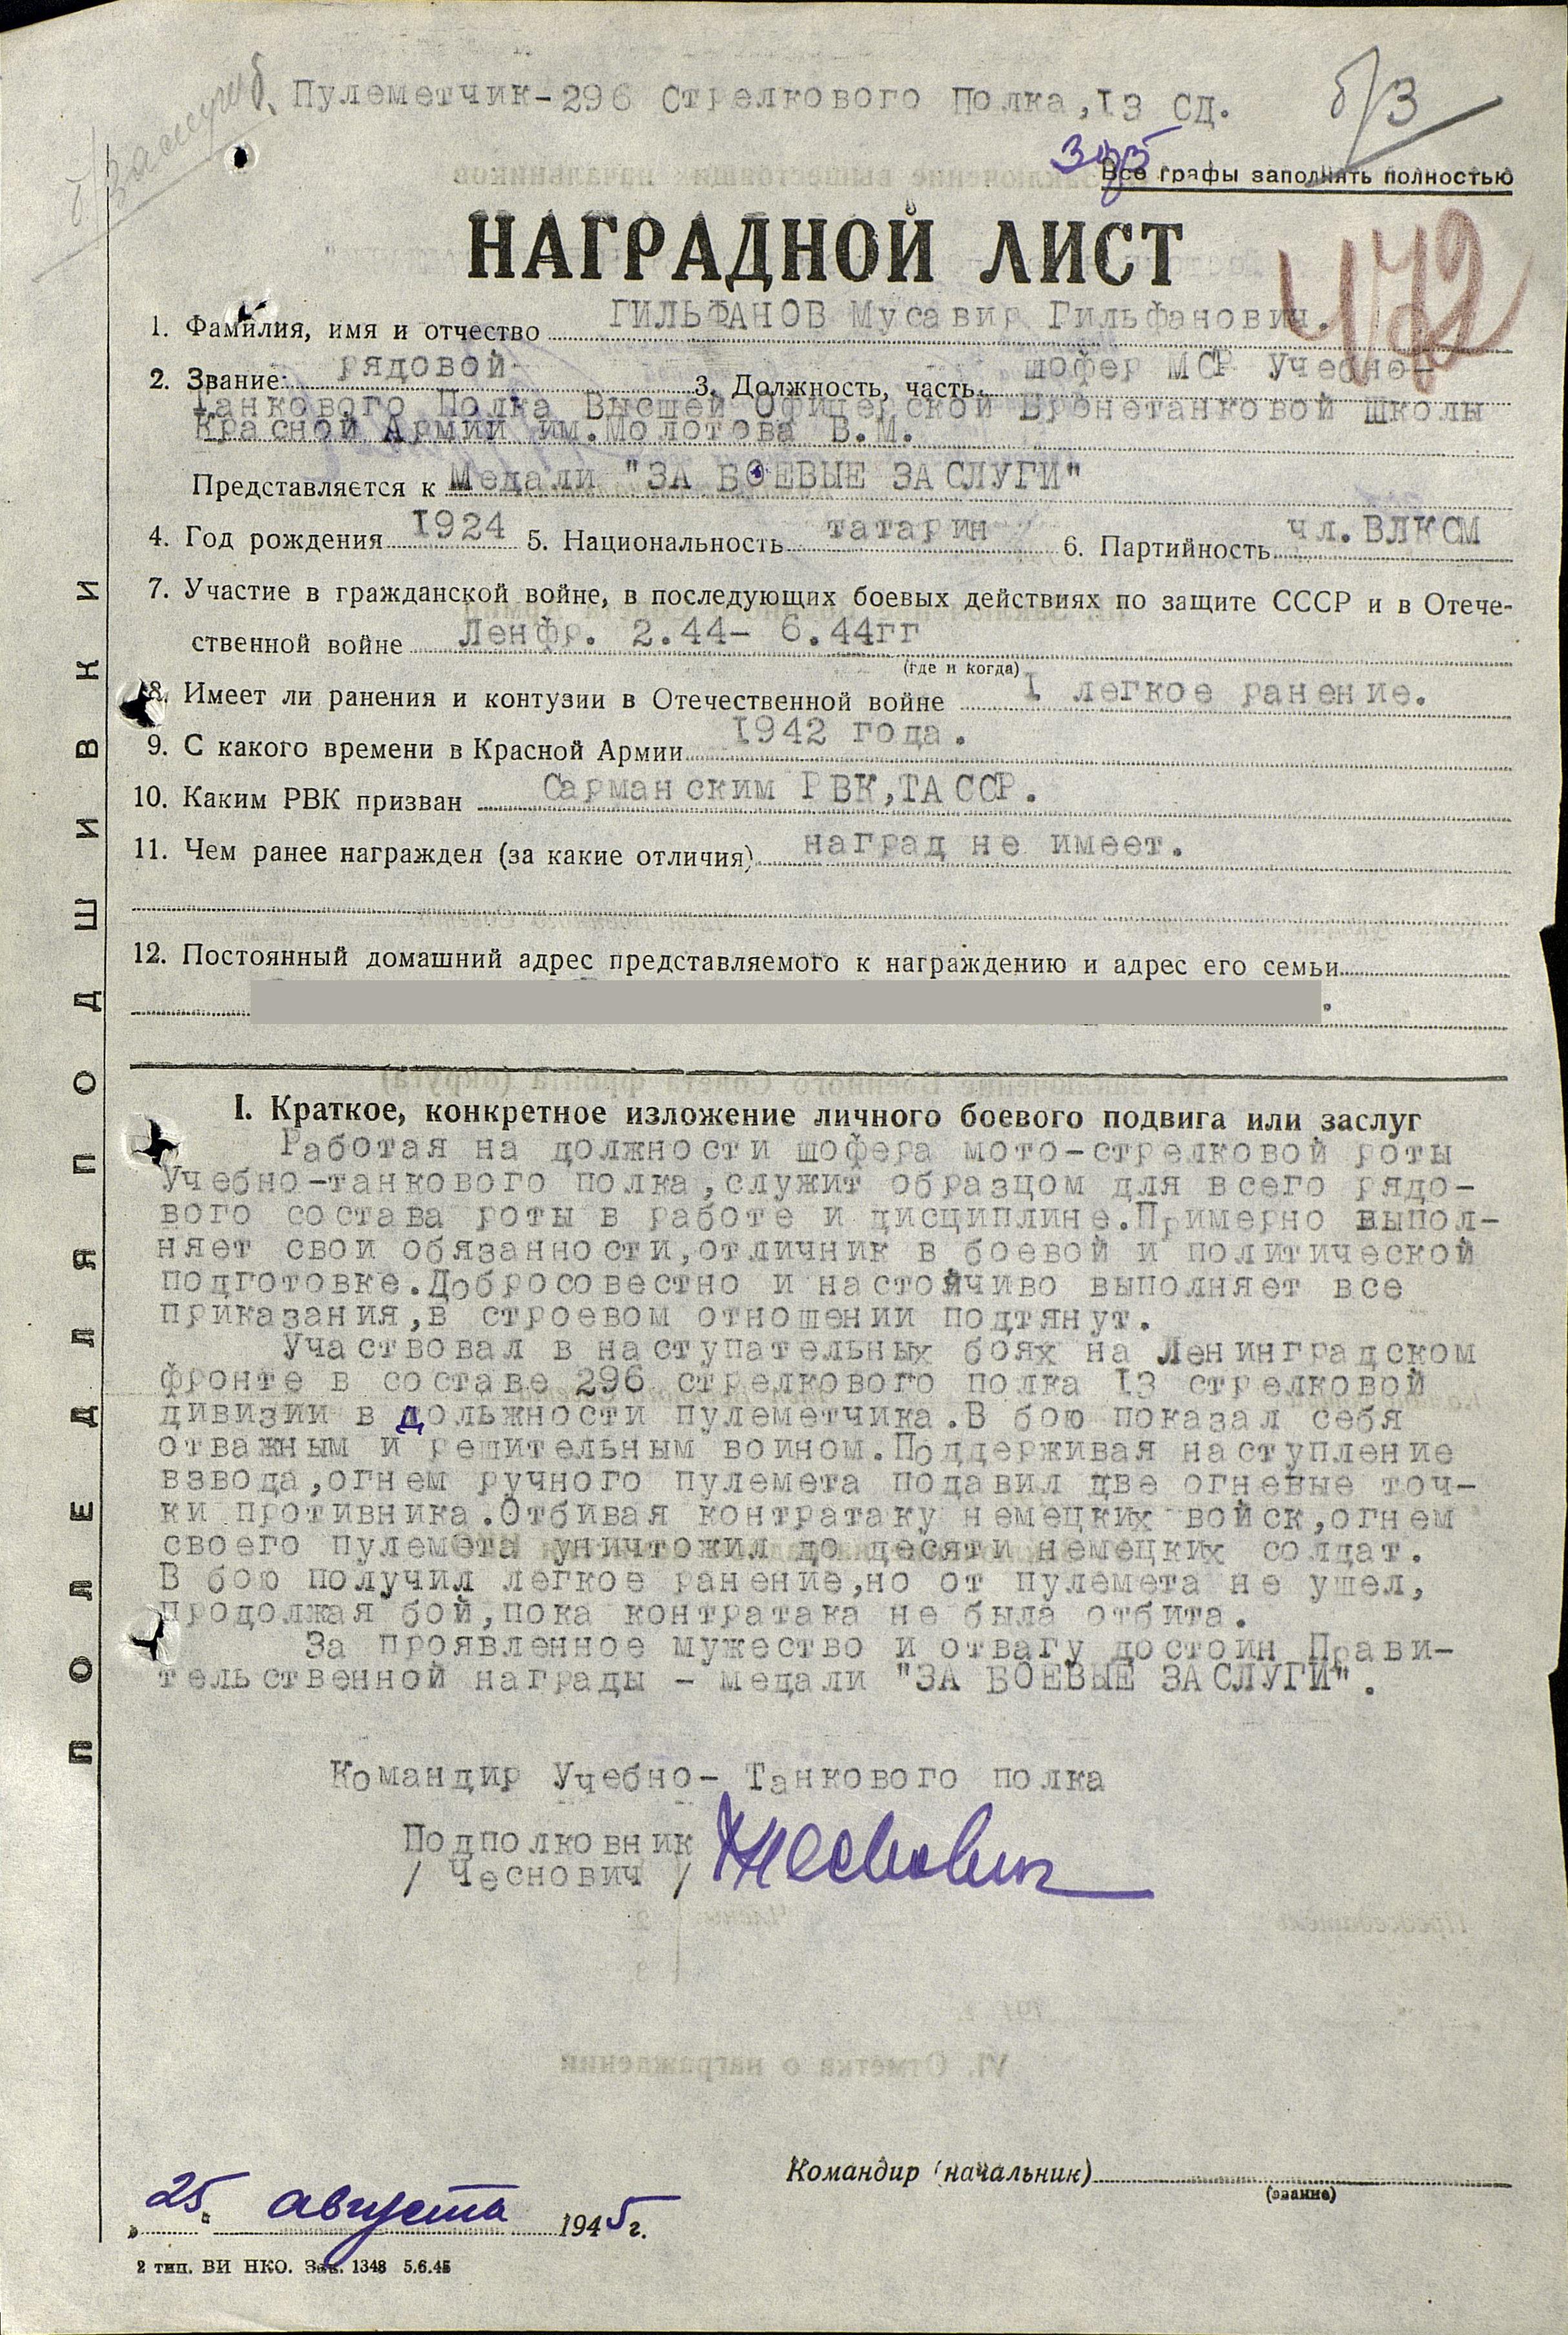 б/заслуги
Пулеметчик-296 Стрелкового Полка,I3 СД.
б/З
Все графы заполнять полностью
НАГРАДНОЙ ЛИСТ
472
1. Фамилия, имя и отчество ГИЛЬФАНОВ Мусавир Гильфанович.
2. Звание рядовой 3. Должность, часть шофер МСР Учебно-
Танкового Полка Высшей Офицерской Бронетанковой Школы
Красной Армии им.Молотова В.М.
Представляется к Медали "ЗА БОЕВЫЕ ЗАСЛУГИ"
4. Год рождения I924 5. Национальность татарин 6. Партийность чл.ВЛКСМ
7. Участие в гражданской войне, в последующих боевых действиях по защите СССР и в Отече-
ственной войне Ленфр. 2.44- 6.44гг
(где и когда)
8. Имеет ли ранения и контузии в Отечественной войне I легкое ранение.
9. С какого времени в Красной Армии I942 года.
10. Каким РВК призван Сарманским РВК,ТАССР.
11. Чем ранее награжден (за какие отличия) наград не имеет.
12. Постоянный домашний адрес представляемого к награждению и адрес его семьи
I. Краткое, конкретное изложение личного боевого подвига или заслуг
Работая на должности шофера мото-стрелковой роты
Учебно-танкового полка,служит образцом для всего рядо-
вого состава роты в работе и дисциплине.Примерно выпол-
няет свои обязанности,отличник в боевой и политической
подготовке.Добросовестно и настойчиво выполняет все
приказания,в строевом отношении подтянут.
Участвовал в наступательных боях на Ленинградском
фронте в составе 296 стрелкового полка I3 стрелковой
дивизии в дольжности пулеметчика.В бою показал себя
отважным и решительным воином.Поддерживая наступление
взвода,огнем ручного пулемета подавил две огневые точ-
ки противника.Отбивая контратаку немецких войск,огнем
своего пулемета уничтожил до десяти немецких солдат.
В бою получил легкое ранение,но от пулемета не ушел,
продолжая бой,пока контратака не была отбита.
За проявленное мужество и отвагу достоин Прави-
тельственной награды - медали "ЗА БОЕВЫЕ ЗАСЛУГИ".
Командир Учебно- Танкового полка
Подполковник
/ Чеснович / Чеснович
Командир (начальник)
(звание)
„25" августа 1945г.
2 тип. ВИ НКО. Зак. 1348 5.6.45
ПОЛЕ ДЛЯ ПОДШИВКИ